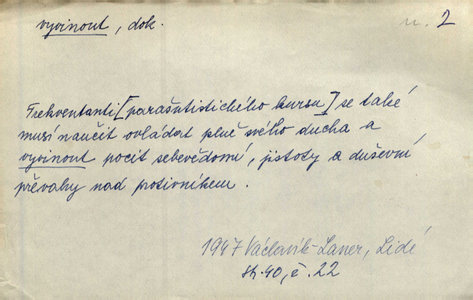 vyvinout, dok.
u. 2
Frekventanti [parašutistického kursu] se také
musí naučit ovládat plně svého ducha a
vyvinout pocit sebevědomí, jistoty a duševní
převahy nad protivníkem.
1947 Václavík-Laner, Lidé
str. 40, č. 22